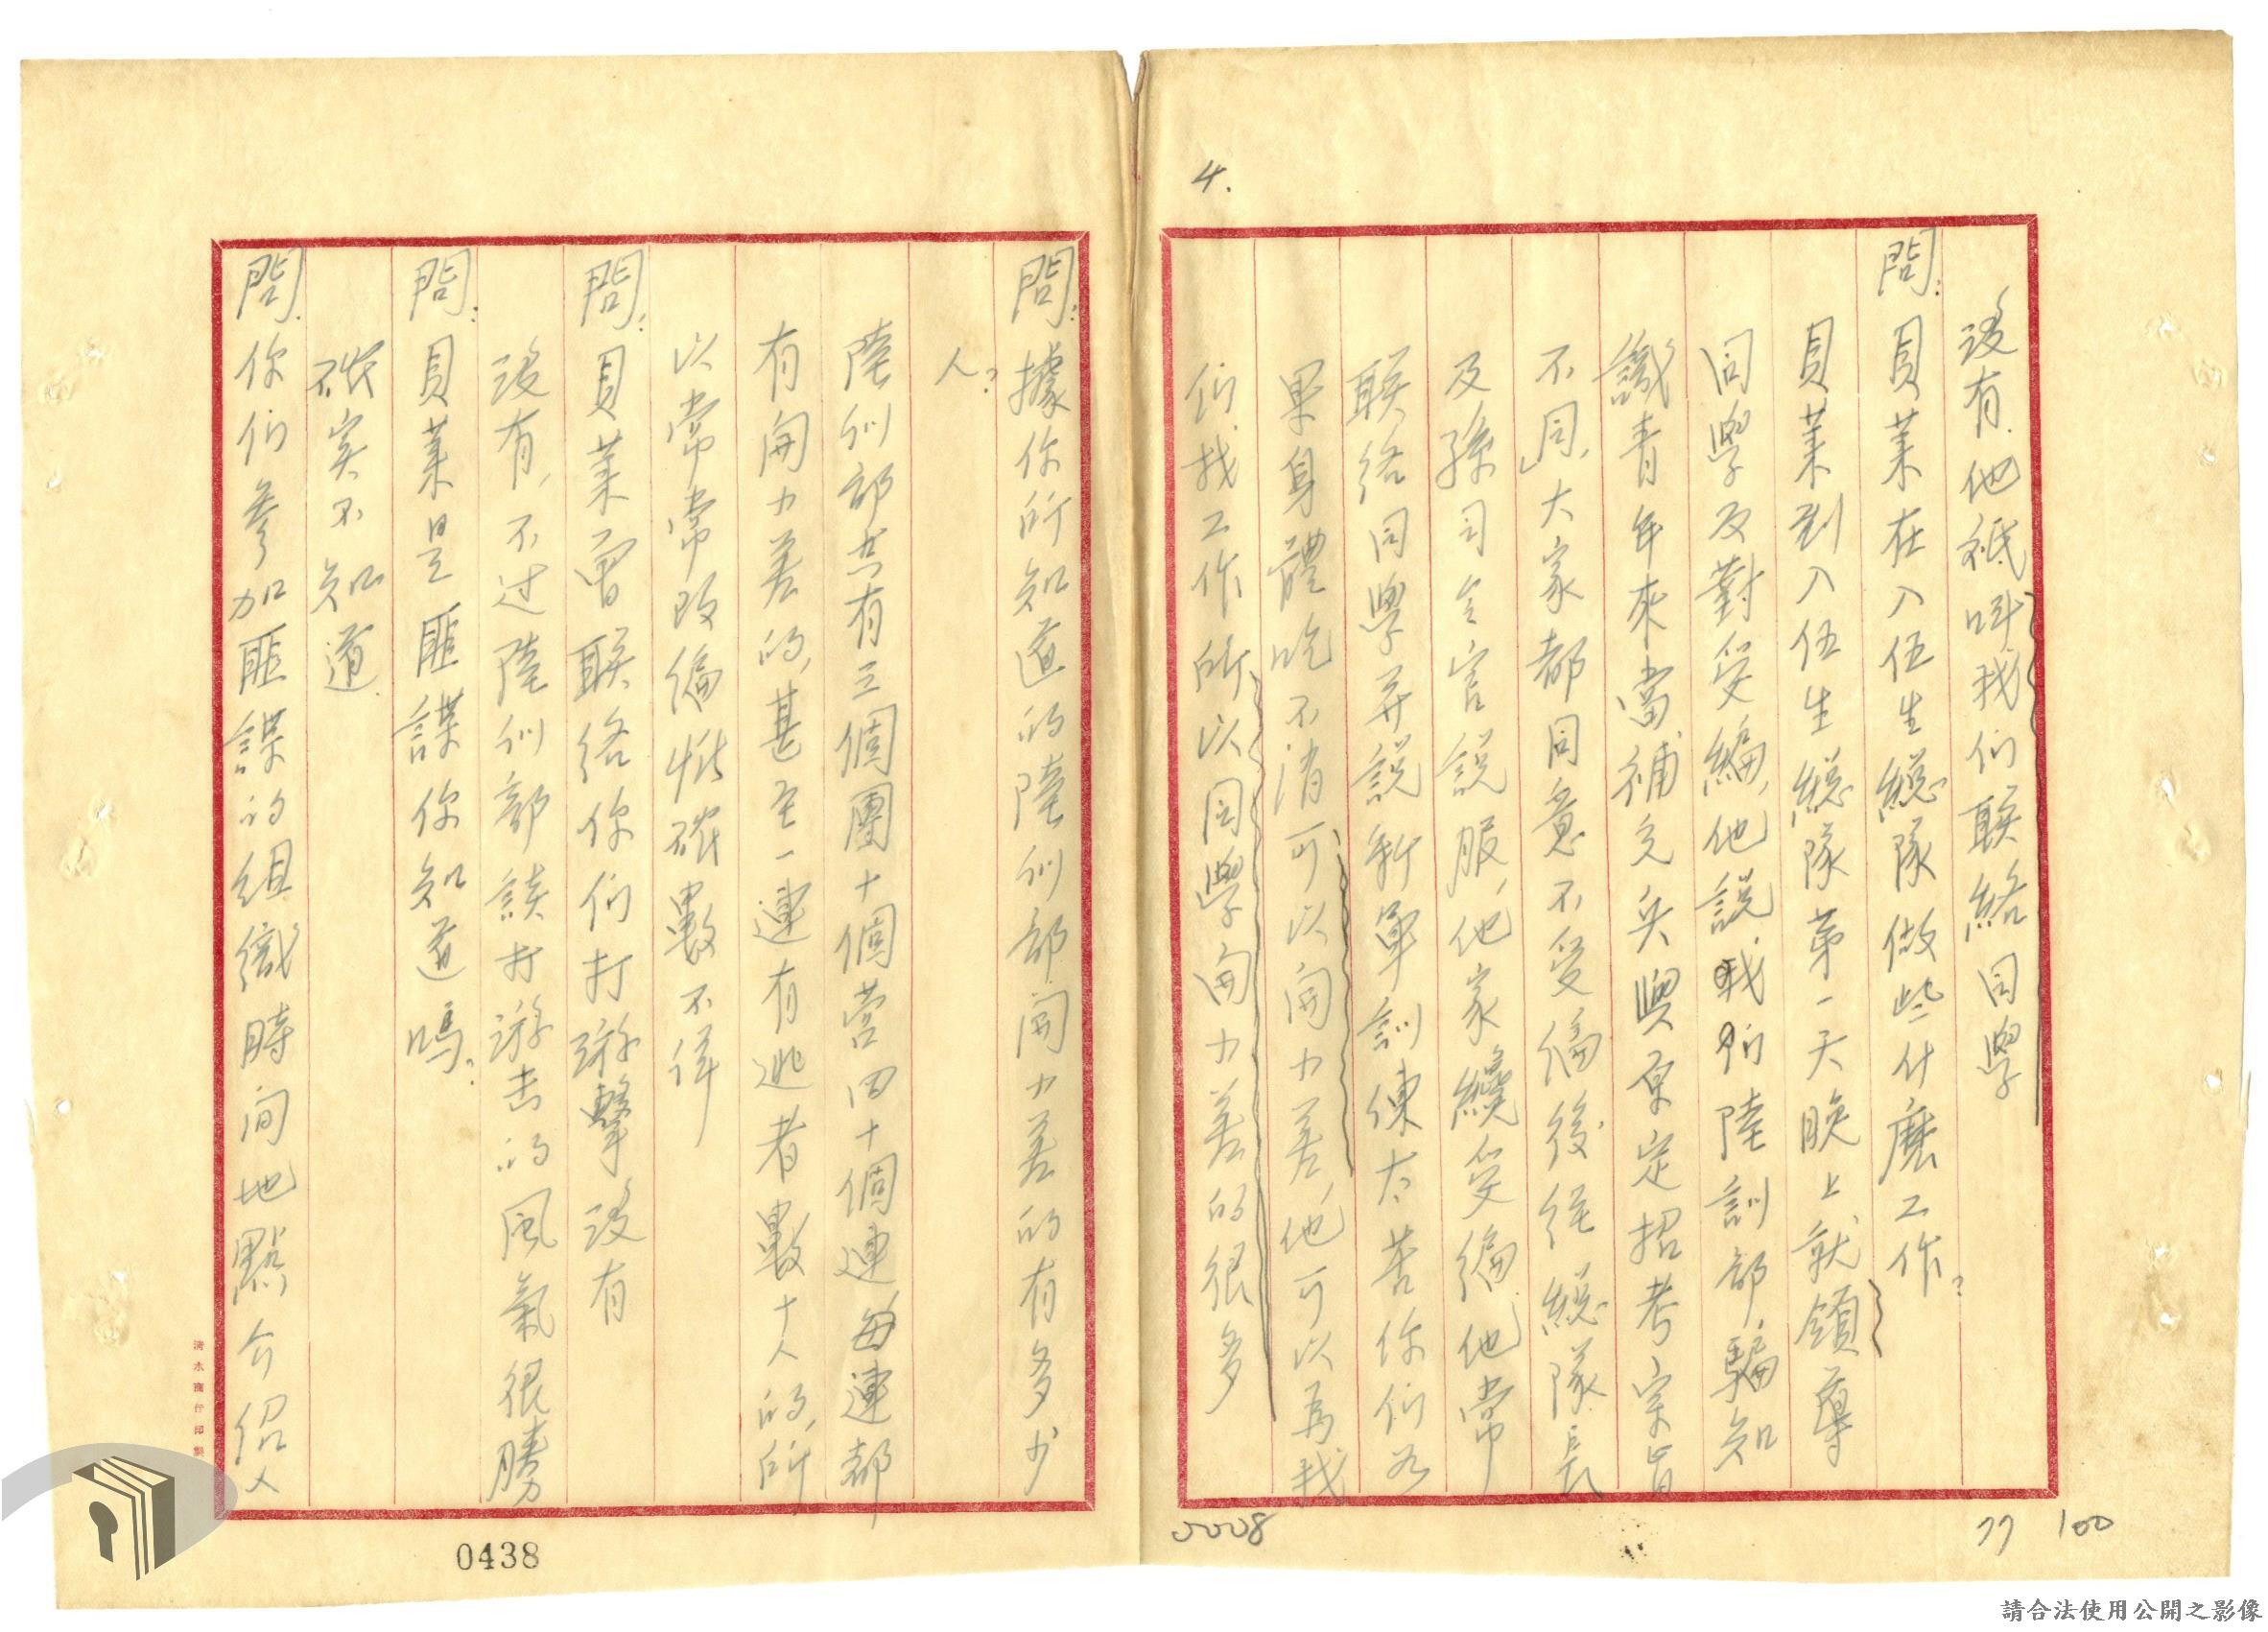 4.
没有他祇叫我们联絡同學
問:員業在入伍生總隊做些什麽工作?
員業到入伍生總隊第一天晚上就領導
同學反對受編,他說我们陸訓部騙知
識青年來當補充兵與原定招考宗旨
不同,大家都同意不受编後經總隊長
及孫司令官説服,他家纔受编他常
联络同學并説新軍訓練太苦你们如
果身體吃不消可以開小差,他可以為我
们找工作所以同學開小差的很多
0008
77 100
問:據你所知道的陸训部開小差的有多少
人?
陸训部共有三個團十個营四十個連每連都
有開小差的,甚至一連有逃者數十人的,所
以常常改编惟確數不详
問:員業曾联络你们打游擊没有
没有,不过陸训部談打游击的風氣很勝
問:員業是匪諜你知道嗎?
確实不知道
問.你们參加匪諜的组織時间地點介绍人
清水商行印製
0438
請合法使用公開之影像